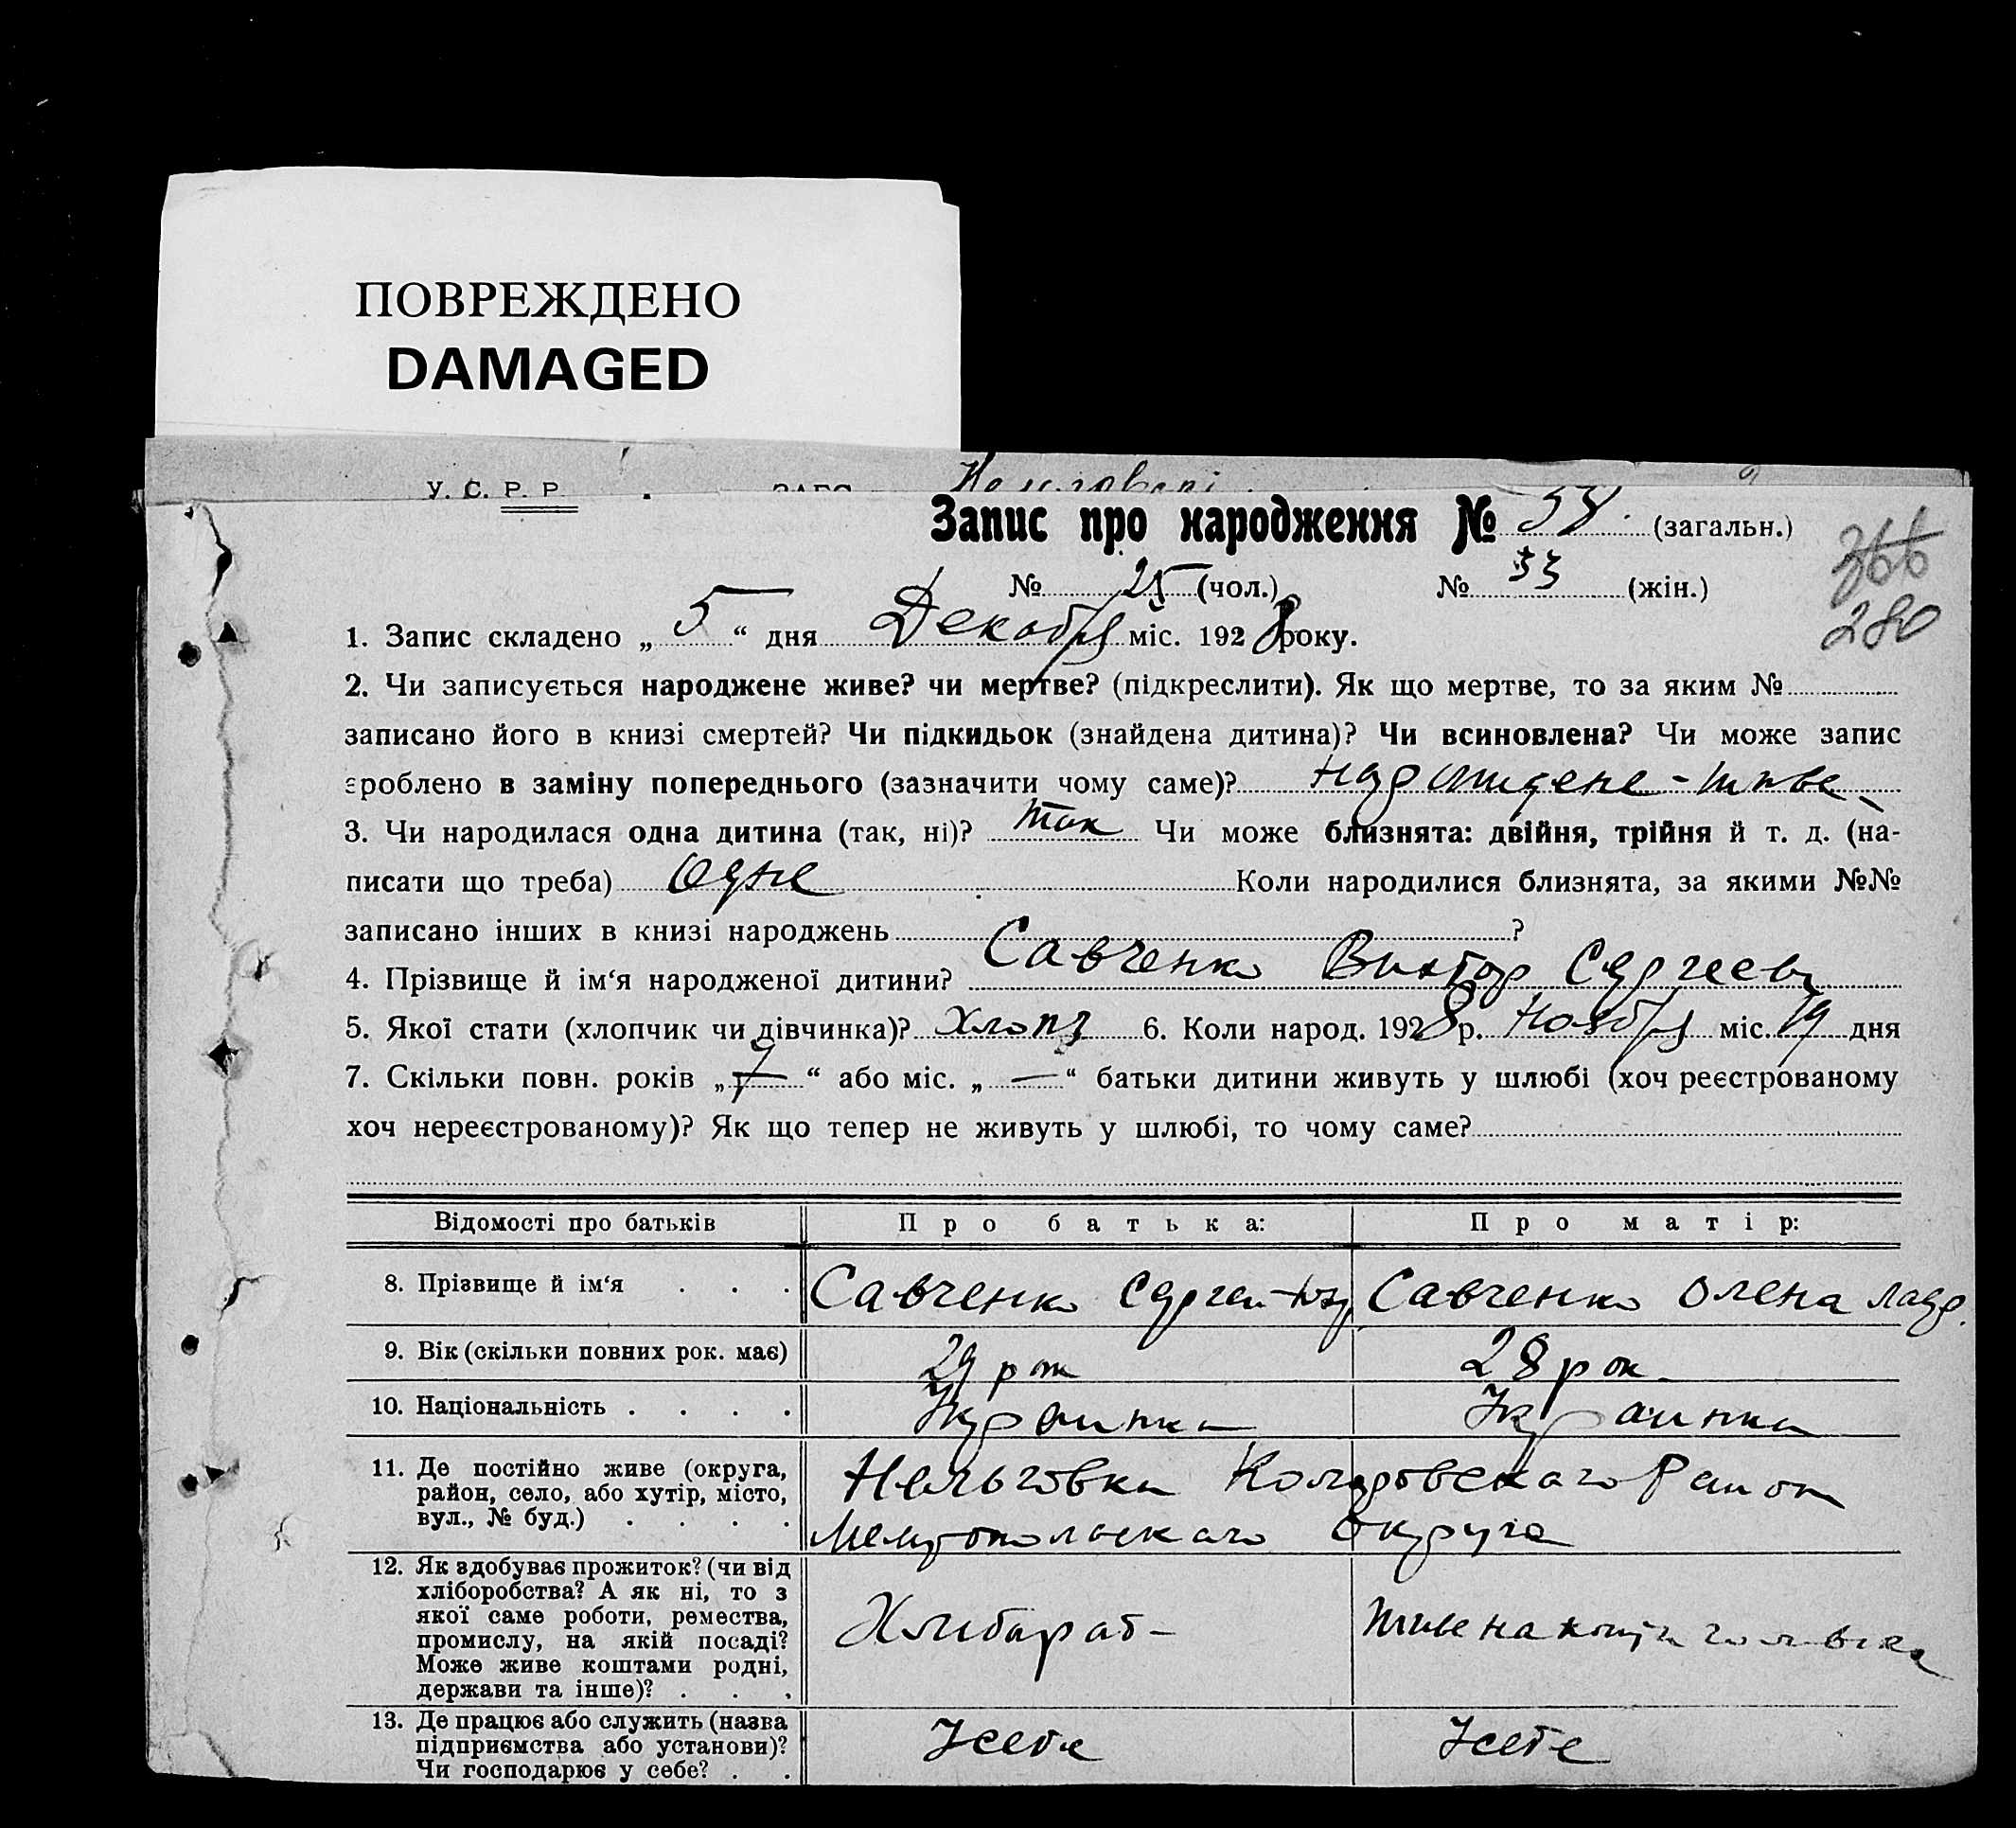 ПОВРЕЖДЕНО
DAMAGED
У. С. Р. Р.
Запис про народження № 58. (загальн.)
366
№ 25 (чол.) № 33 (жін.)
280
1. Запис складено „ 5 “ дня Декабря міс. 1928 року.
2. Чи записується народжене живе? чи мертве? (підкреслити). Як що мертве, то за яким №
записано його в книзі смертей? Чи підкидьок (знайдена дитина)? Чи всиновлена? Чи може запис
зроблено в заміну попереднього (зазначити чому саме)? народжене - живе
3. Чи народилася одна дитина (так, ні)? так Чи може близнята: двійня, трійня й т. д. (на-
писати що треба) Одне Коли народилися близнята, за якими №№
записано інших в книзі народжень ?
4. Прізвище й ім‘я народженої дитини? Савченко Виктор Сергеев
5. Якої стати (хлопчик чи дівчинка)? Хлопч 6. Коли народ. 1928 р. Ноября міс. 19 дня
7. Скільки повн. років „ “ або міс. „ — “ батьки дитини живуть у шлюбі (хоч реєстрованому
хоч нереєстрованому)? Як що тепер не живуть у шлюбі, то чому саме?
Відомості про батьків Про батька: Про матір:
8. Прізвище й ім‘я . . . Савченко Сергей Савченко Олена Лавр.
9. Вік (скільки повних рок. має) 29 рок 28 рок
10. Національність . . . . Украинка
11. Де постійно живе (округа,
район, село, або хутір, місто,
вул., № буд.) . . . .
Нельговка Коларовскаго Район
Мелитопольскаго Округа
12. Як здобуває прожиток? (чи від
хліборобства? А як ні, то з
якої саме роботи, ремества,
промислу, на якій посаді?
Може живе коштами родні,
держави та інше)? . . .
Хлибораб-
живе на
13. Де працює або служить (назва
підприємства або установи)?
Чи господарює у себе? . .
Усебе Усебе